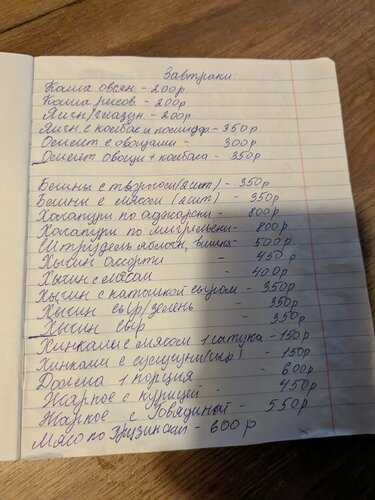 Завтраки:
Каша овсян - 200р
Каша рисов - 200р
Яичн/глазун - 200р
Яичн с колбас и помидор - 350р
Омлет с овощами - 300р
Омлет овощи + колбаса - 350р
Блины с творогом (2шт) - 350р
Блины с мясом (2шт) - 350р
Хачапури по аджарски - 800р
Хачапури по мигрельски - 800р
Штрудель яблоки, вишня - 500р
Хычин ассорти - 450р
Хычин с мясом - 400р
Хычин с картошкой сыром - 350р
Хычин сыр/зелень - 350р
Хычин сыр - 350р
Хинкалы с мясом 1 штука - 150р
Хинкали с сулугуни/сыр - 150р
Долма 1 порция - 600р
Жаркое с курицей - 450р
Жаркое с говядиной - 550р
Мясо по грузински - 600р